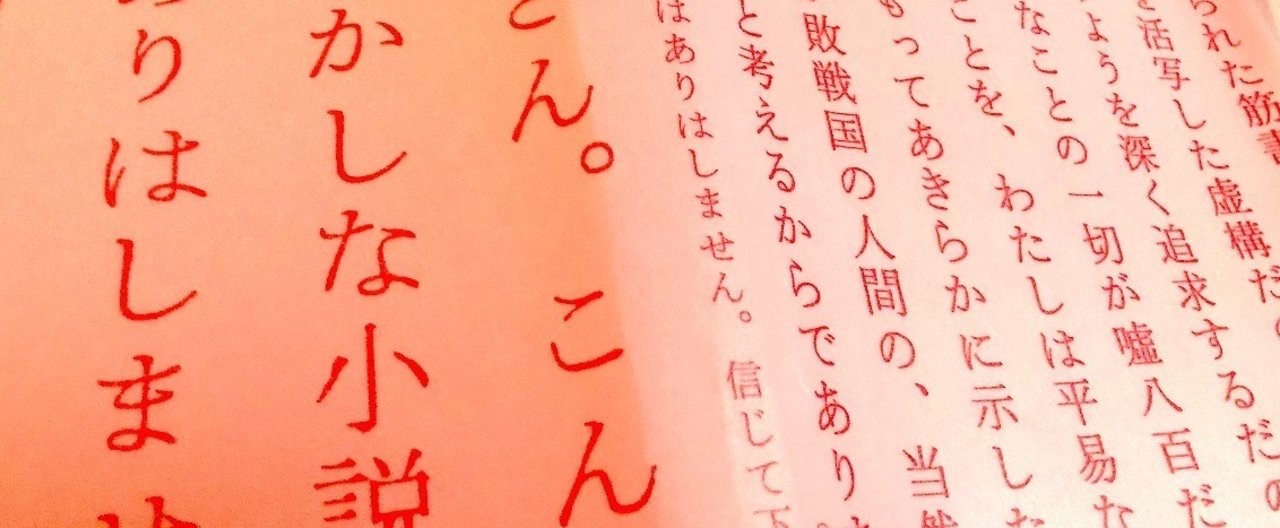 られた筋書
を活写した虚構だ
ようを深く追求するだの
なことの一切が嘘八百だ
ことを、わたしは平易な
もってあきらかに示した
敗戦国の人間の、当然
と考えるからであり
はありはしません。信じて下
こん。こん
かしな小説
ありはしませ